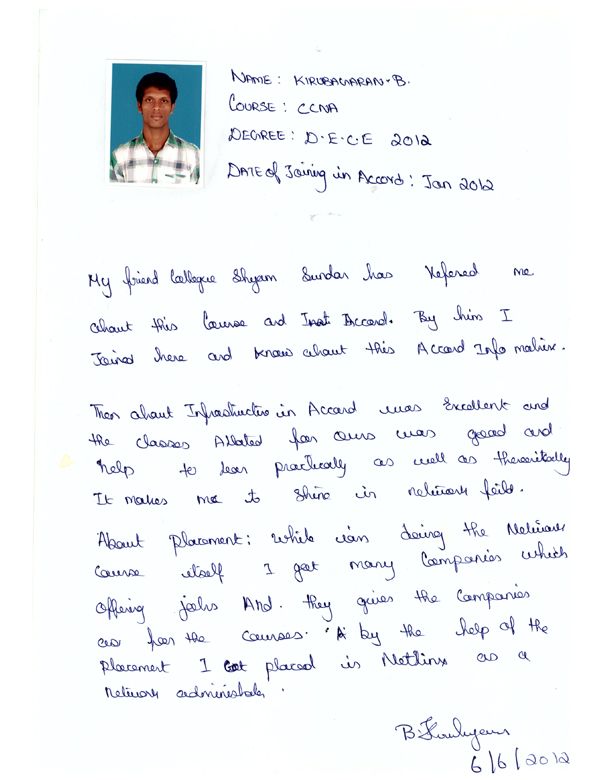 NAME: KIRUBAGARAN.B.
COURSE: CCNA
DEGREE: D.E.C.E 2012
DATE of Joining in Accord: Jan 2012
My friend Collegue Shyam Sundar has Refered me
about this Course and Inst Accord. By him I
Joined here and know about this Accord Info matrix.
Then about Infrastructure in Accord was Excellent and
the classes Alloted for ours was good and
help to lean practically as well as
It makes me to shine in network feild.
About placement: While iam doing the Network
Course itself I get many Companies which
offering jobs And. they gives the Companies
as per the courses. A by the help of the
placement I Got placed in Netlinx as a
Network
6/6/2012